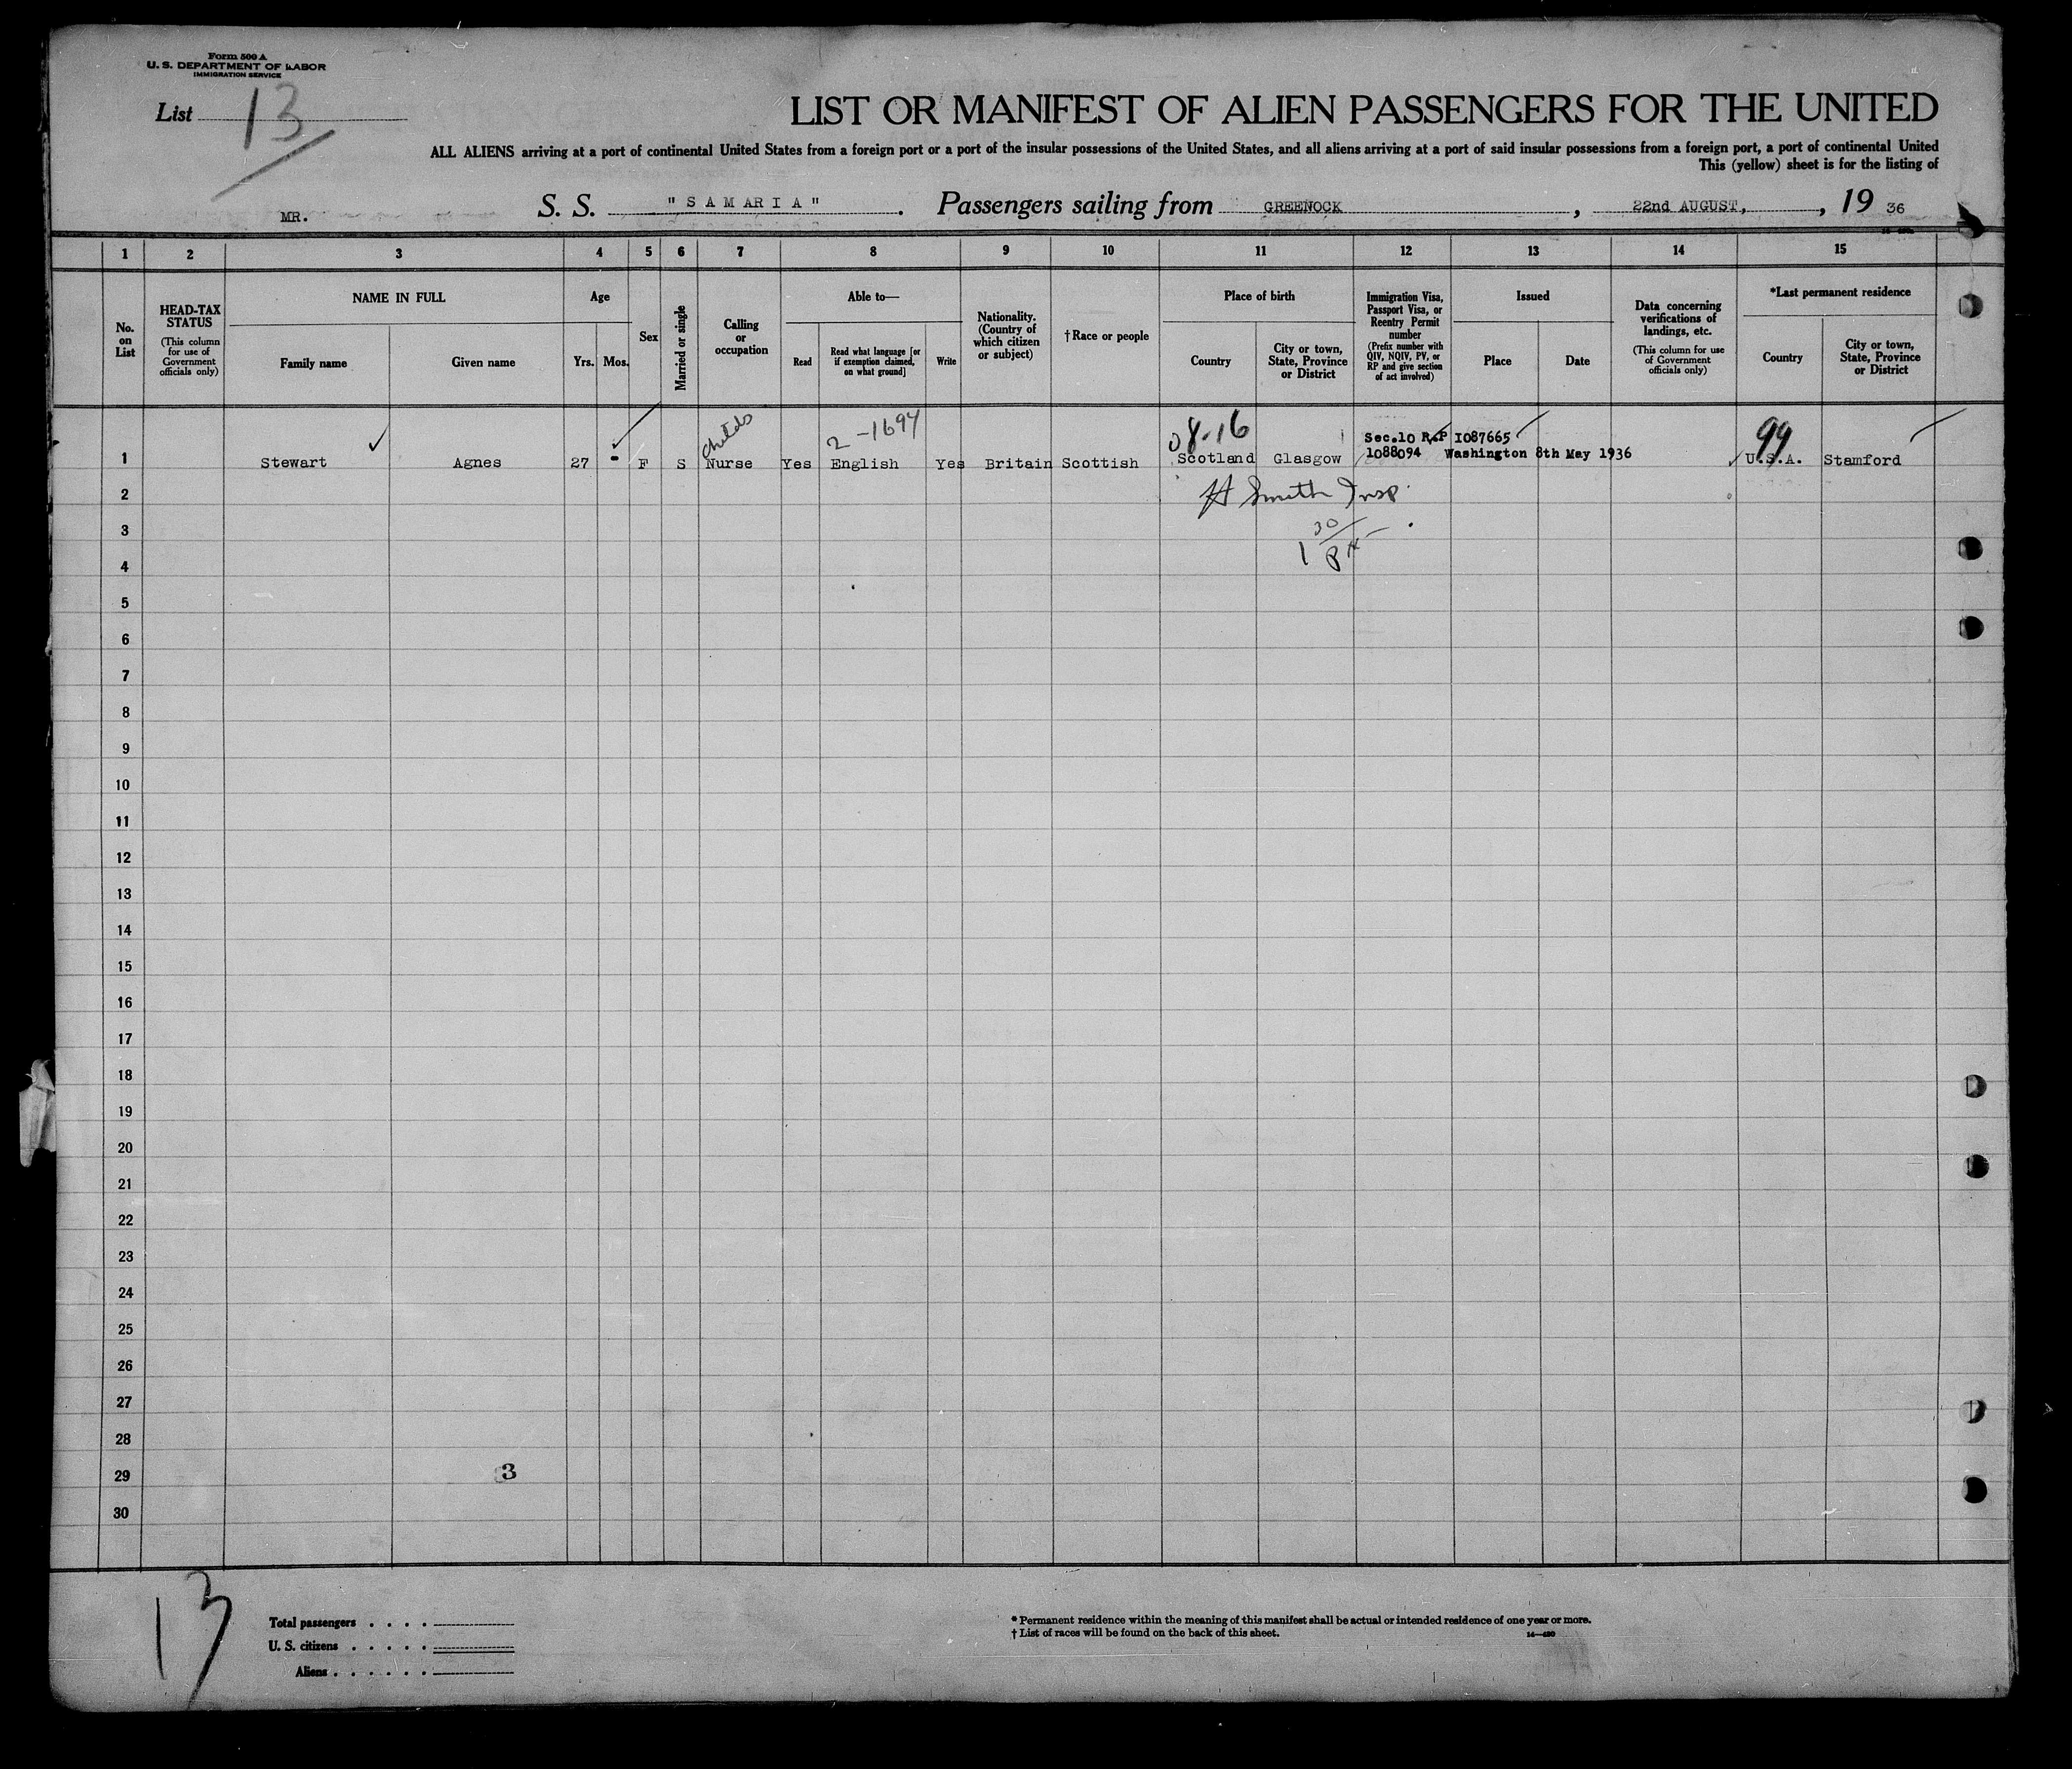 Form 500 A
U. S. DEPARTMENT OF LABOR
IMMIGRATION SERVICE
List 13
LIST OR MANIFEST OF ALIEN PASSENGERS FOR THE UNITED
ALL ALIENS arriving at a port of continental United States from a foreign port or a port of the insular possessions of the United States, and all aliens arriving at a port of said insular possessions from a foreign port, a port of continental United
This (yellow) sheet is for the listing of
MR. S. S. "SAMARIA". Passengers sailing from GREENOCK, 22nd AUGUST, , 19 36
1 2 3 4 5 6 7 8 9 10 11 12 13 14 15
No. on List
HEAD-TAX STATUS
(This column for use of Government officials only)
NAME IN FULL
Family name
Given name
Age
Yrs. Mos.
Sex
Married or single
Calling or occupation
Able to—
Read
Read what language [or if exemption claimed, on what ground]
Write
Nationality. (Country of which citizen or subject)
†Race or people
Place of birth
Country
City or town, State, Province or District
Immigration Visa, Passport Visa, or Reentry Permit number
(Prefix number with QIV, NQIV, PV, or RP and give section of act involved)
Issued
Place
Date
Data concerning verifications of landings, etc.
(This column for use of Government officials only)
*Last permanent residence
Country
City or town, State, Province or District
Childs 2-1694 8-16 Sec.10 R.P I087665 99
1 Stewart Agnes 27 - F S Nurse Yes English Yes Britain Scottish Scotland Glasgow 1088094 Washington 8th May 1936 U.S.A. Stamford
2 H Smith Insp
3 30
4 1
5
6
7
8
9
10
11
12
13
14
15
16
17
18
19
20
21
22
23
24
25
26
27
28
29 3
30
13
Total passengers . . . .
U. S. citizens . . . . .
Aliens . . . . . .
* Permanent residence within the meaning of this manifest shall be actual or intended residence of one year or more.
† List of races will be found on the back of this sheet.